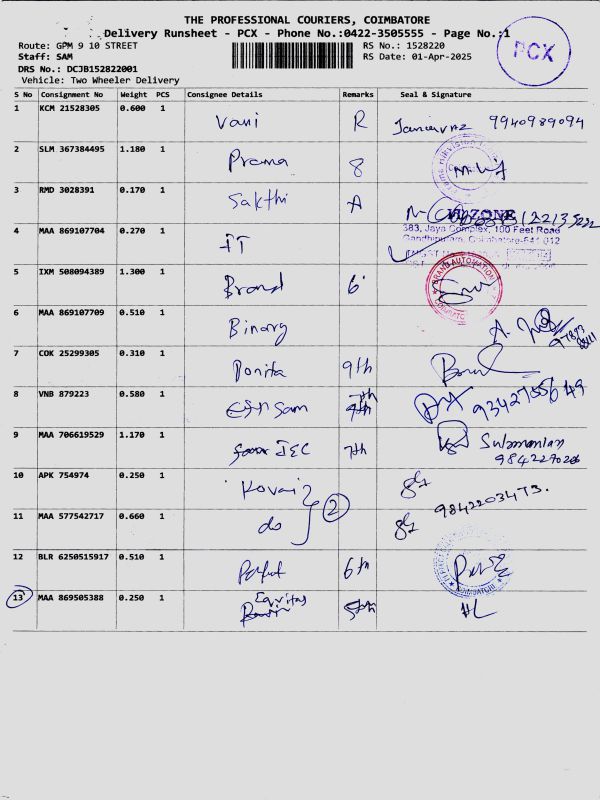 THE PROFESSIONAL COURIERS, COIMBATORE
Delivery Runsheet - PCX - Phone No.:0422-3505555 - Page No.:1
Route: GPM 9 10 STREET
RS No.: 1528220
PCX
Staff: SAM
RS Date: 01-Apr-2025
DRS No.: DCJB152822001
Vehicle: Two Wheeler Delivery
S No Consignment No Weight PCS Consignee Details Remarks Seal & Signature
1 KCM 21528305 0.600 1 Vani R 9940989094
2 SLM 367384495 1.180 1 Prema 8
3 RMD 3028391 0.170 1 Sakthi A
383, Jaya Complex, 100 Feet Road
4 MAA 869107704 0.270 1 IT
5 IXM 508094389 1.300 1 Brand 6
BRAND AUTOMATION
6 MAA 869107709 0.510 1 Binary
7 COK 25299305 0.310 1 9th
8 VNB 879223 0.580 1 7th
9 MAA 706619529 1.170 1 IEC 7th Submanian
10 APK 754974 0.250 1 Kovai 2
11 MAA 577542717 0.660 1 do
12 BLR 6250515917 0.510 1 Perfect 6th
13 MAA 869505388 0.250 1 Equitas